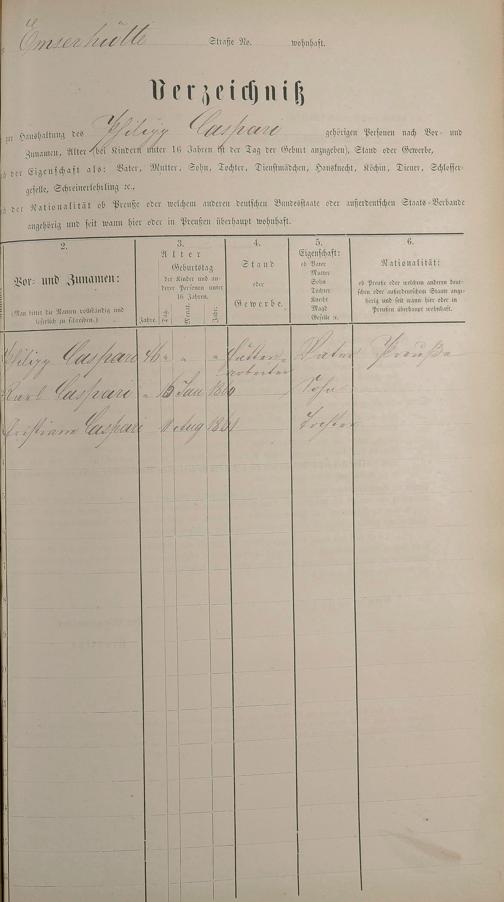 Emserhütte Straße No. wohnhaft.
Verzeichniß
zur Haushaltung des Philipp Caspari gehörigen Personen nach Vor- und
Zunamen, Alter (bei Kindern unter 16 Jahren in der Tag der Geburt anzugeben), Stand oder Gewerbe,
der Eigenschaft als: Vater, Mutter, Sohn, Tochter, Dienstmädchen, Hausknecht, Köchin, Diener, Schlosser-
geselle, Schreinerlehrling ꝛc.,
der Nationalität ob Preuße oder welchem anderen deutschen Bundesstaate oder außerdeutschen Staats-Verbande
angehörig und seit wann hier oder in Preußen überhaupt wohnhaft.
2. 3. 4. 5. 6.
Vor- und Zunamen:
(Man bittet die Namen vollständig und
leserlich zu schreiben.)
Alter
Geburtstag
der Kinder und an-
derer Personen unter
16 Jahren.
Jahre. Tag. Monat. Jahr.
Stand
oder
Gewerbe.
Eigenschaft:
ob Vater
Mutter
Sohn
Tochter
Knecht
Magd
Geselle ꝛc.
Nationalität:
ob Preuße oder welchem anderen deut-
schen oder außerdeutschen Staat ange-
hörig und seit wann hier oder in
Preußen überhaupt wohnhaft.
Philipp Caspari 46 " " " Hütten- Vater Preuße
arbeiter
Karl Caspari " Jan Sohn
Caspari Aug Tochter